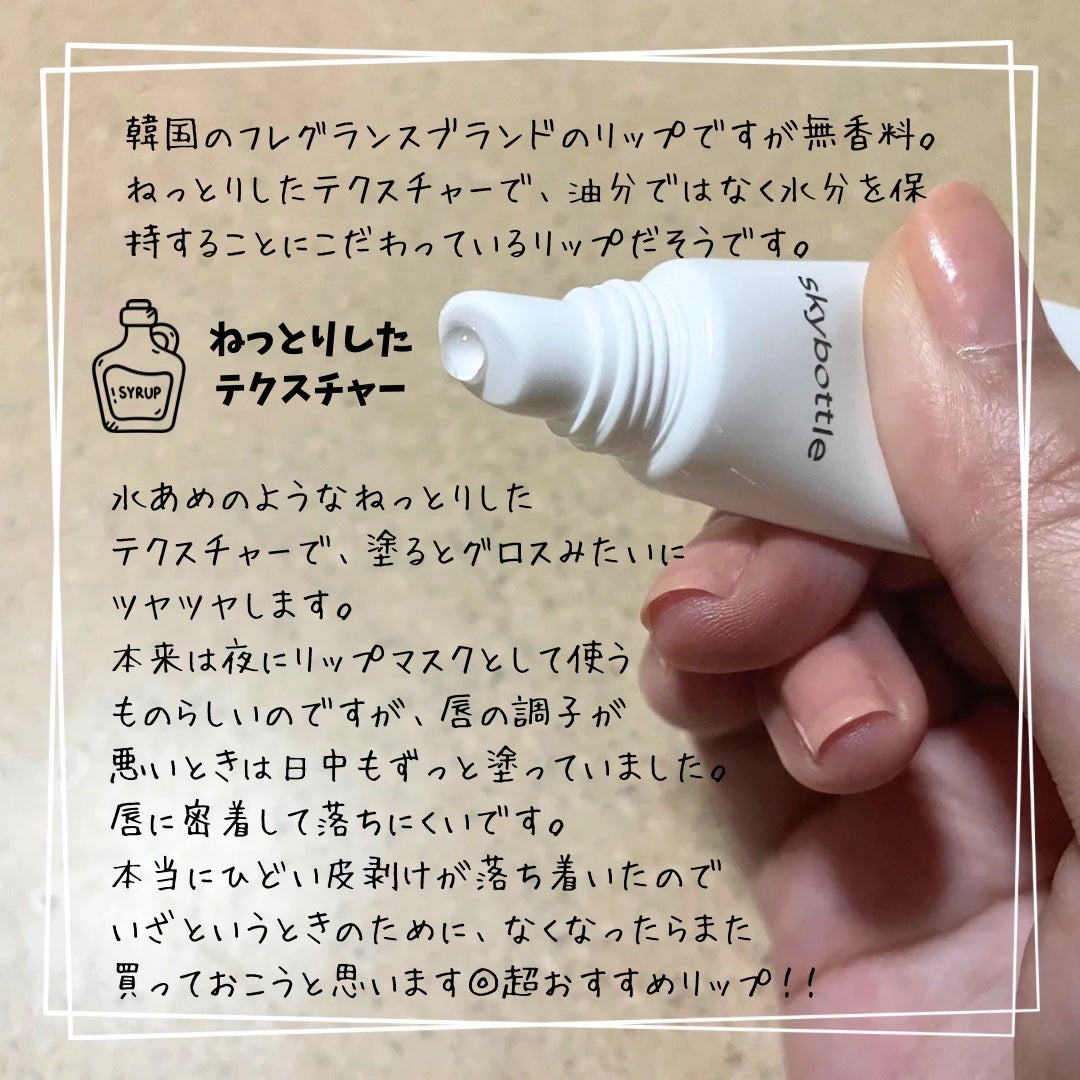 韓国のフレグランスブランドのリップですが無香料。
ねっとりしたテクスチャーで、油分ではなく水分を保
持することにこだわっているリップだそうです。
skybottle
SYRUP
ねっとりした
テクスチャー
水あめのようなねっとりした
テクスチャーで、塗るとグロスみたいに
ツヤツヤします。
本来は夜にリップマスクとして使う
ものらしいのですが、唇の調子が
悪いときは日中もずっと塗っていました。
唇に密着して落ちにくいです。
本当にひどい皮剥けが落ち着いたので
いざというときのために、なくなったらまた
買っておこうと思います◎超おすすめリップ!!